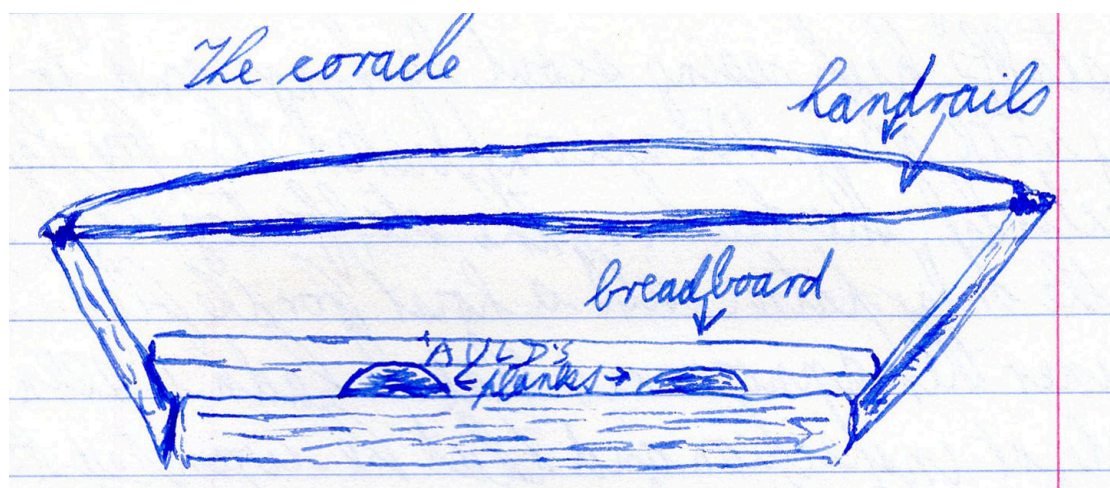 The coracle
handrails
breadboard
'AULD'S
planks